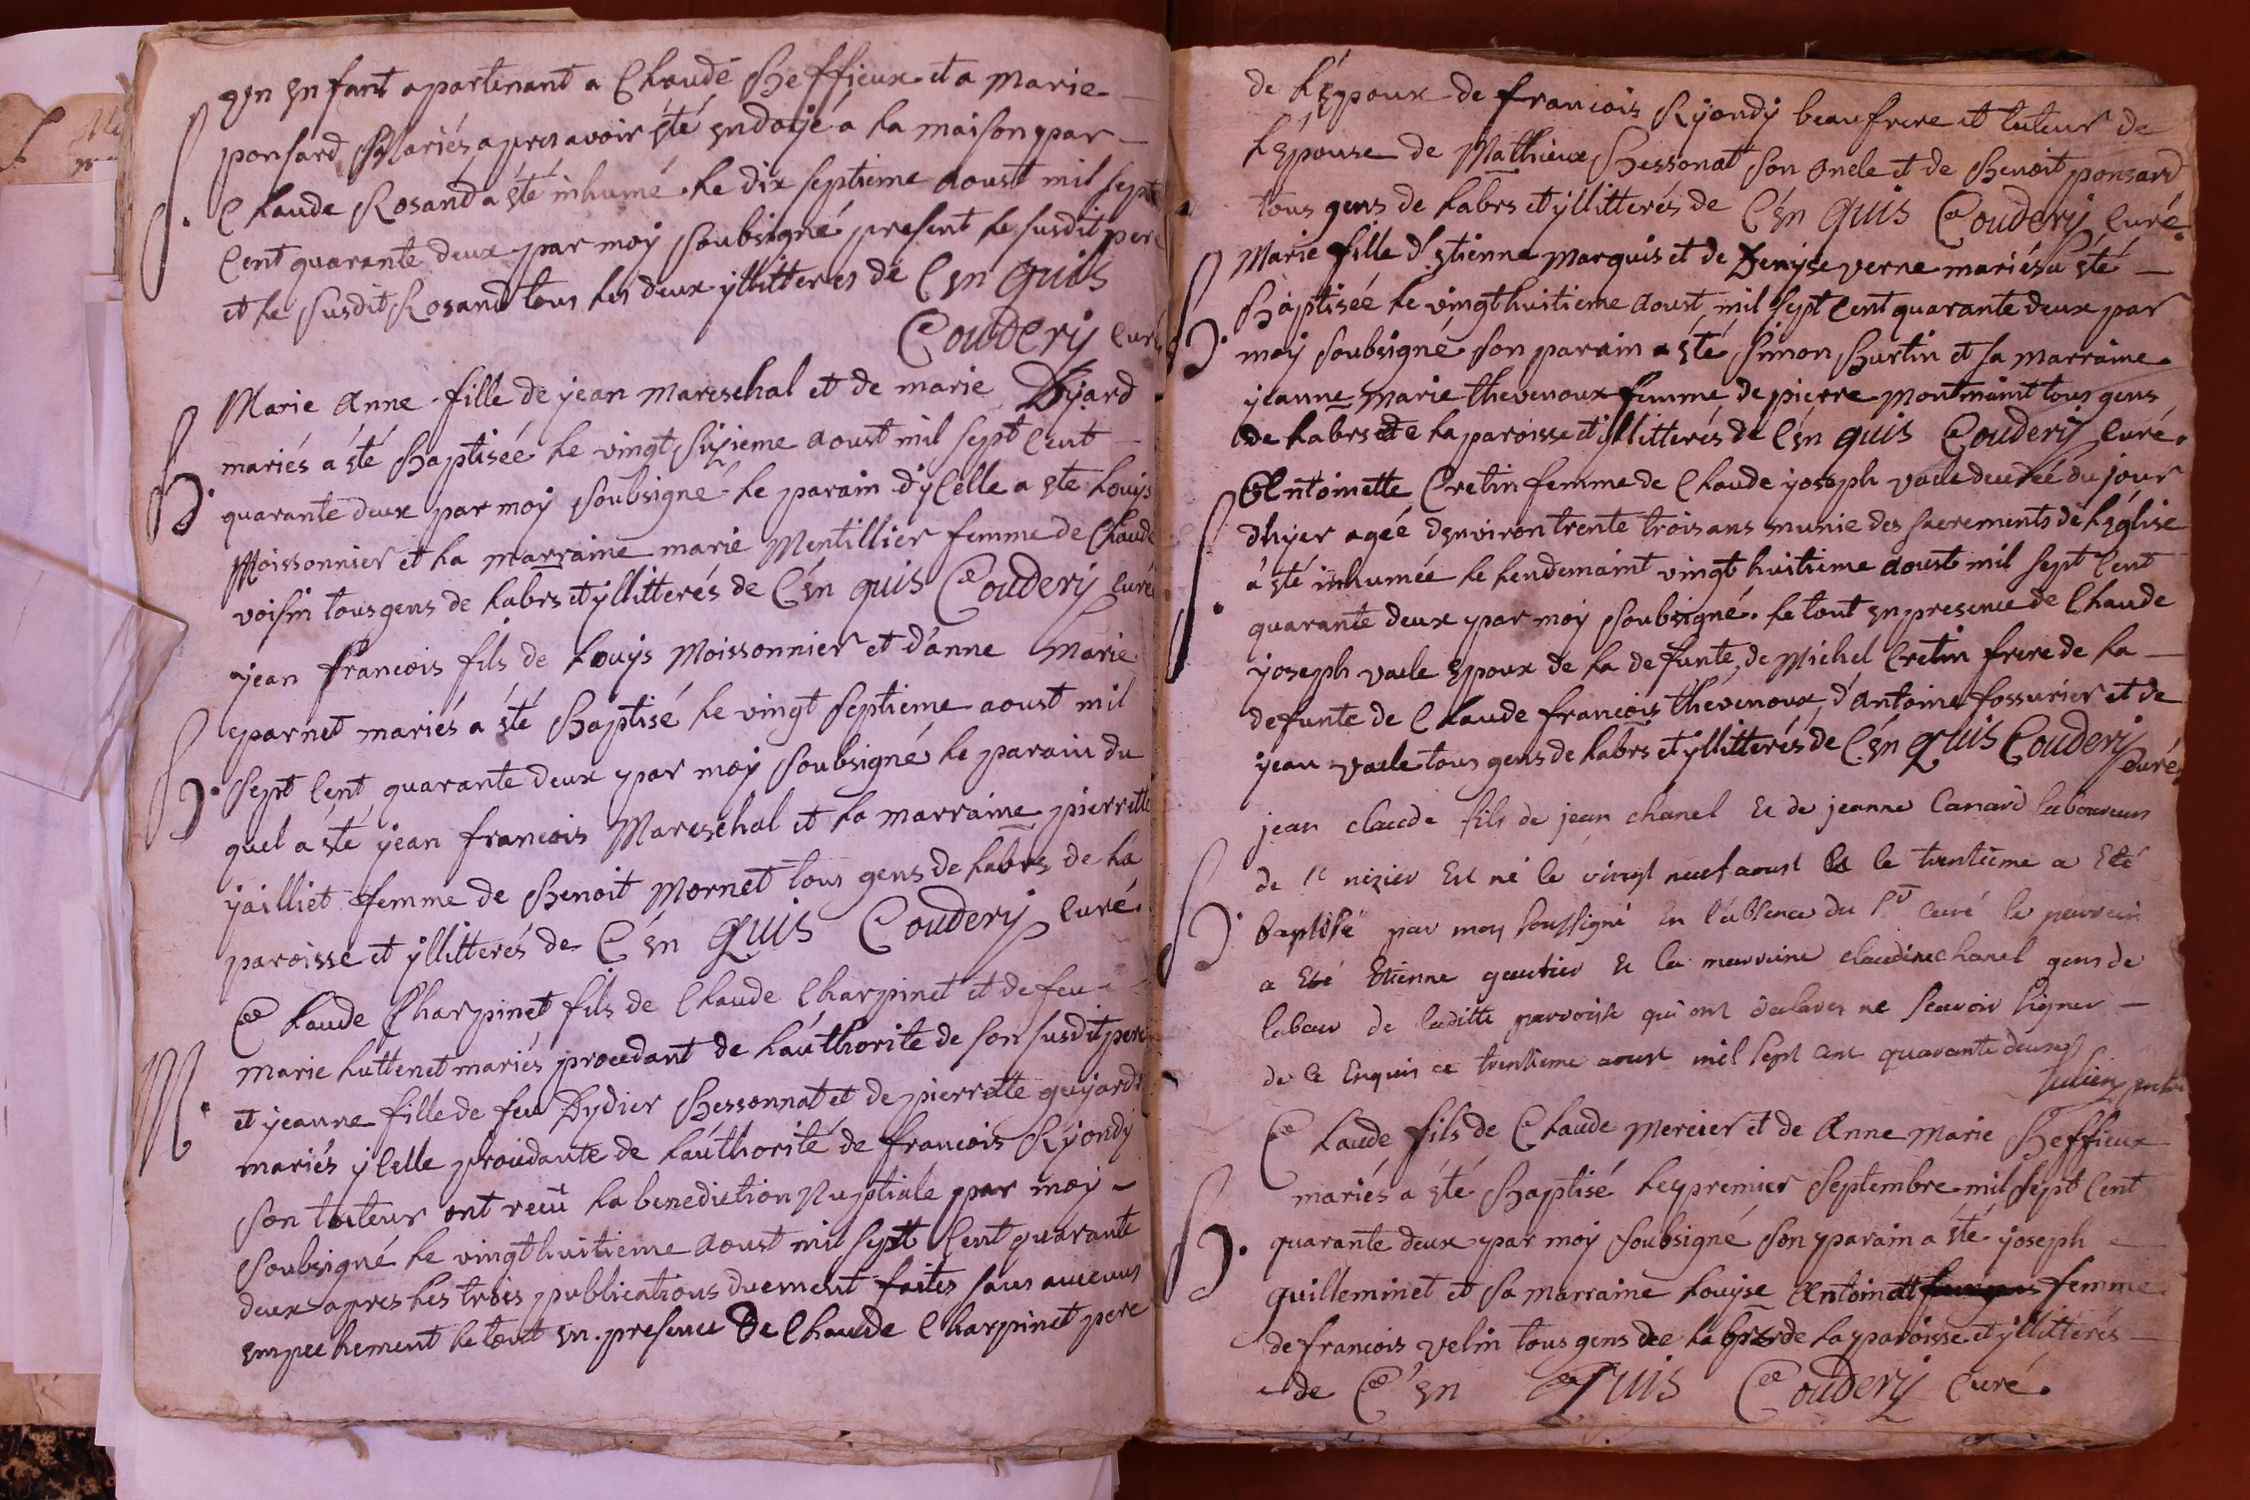 S.
yn enfant apartenant a Claude Beffieux et a Marie
ponsard Mariés apres avoir été endoyé a la maison par
Claude Rosand a été inhumé le dix septieme aoust mil sept
cent quarante deux par moy soubsigné present le susdit pere
et le susdit Rosand tous les deux yllitteres de C'en quis
Coudery curé
B.
Marie Anne fille de jean Mareschal et de marie Dyard
mariés a été Baptiseé le vingt sixieme aoust mil sept cent
quarante deux par moy soubsigné le parain d'ycelle a eté Louys
Moissonnier et la marraine marie Mentillier femme de Claude
voisin tous gens de labrs et yllitterés de C'én quis Coudery curé
B.
jean francois fils de Louys Moissonnier et d'anne Marie
parnet mariés a été Baptisé le vingt septieme aoust mil
sept cent quarante deux par moy soubsigné le parain du
quel a été jean francois Mareschal et la marraine pierrette
jailliet femme de Benoit Mornet tous gens de labrs de la
paroisse et yllitterés de C'én quis Coudery curé.
M.
Claude Charpinet fils de Claude Charpinet et de feu
marie huttenet mariés procedant de l'authorité de son susdit pere
et jeanne fille de feu Dydier Bessonnat et de pierrette guyard
mariés ycelle procedante de l'authorité de francois Ryondy
son tuteur ont recu la benediction Nuptiale par moy
soubsigné le vingt huitieme aoust mil sept cent quarante
deux apres les trois publications duement faites sans aucuns
empechement le tout en presence De Claude Charpinet pere
de l'époux de francois Ryondy beaufrere et tuteur de
l'épouse de Mathieux Bessonat son oncle et de Benoit ponsard
tous gens de labrs et yllitterés de C'én quis Coudery curé.
B.
Marie fille d'etienne Marquis et de Denyse verne mariés a été
Baptiseé le vingt huitieme aoust mil sept cent quarante deux par
moy soubsigné son parain a été simon Burtin et sa marraine
jeanne Marie thevenoux femme de pierre Montmaint tous gens
de labrs de la paroisse et yllitterés de C'én quis Coudery curé.
S.
Antoinette Cretin femme de Claude joseph vacle decedeé du jour
d'hyer ageé d'environ trente trois ans munie des sacrements de l'église
a été inhumée le lendemaint vingt huitieme aoust mil sept cent
quarante deux par moy soubsigné. le tout en presence de Claude
joseph vacle epoux de la defunte, de Michel Cretin frere de la
defunte de Claude francois thévenoux, d'Antoine fossurier et de
jean vacle tous gens de labrs et yllitterés de C'én quis Coudery curé
B.
jean claude fils de jean chanel et de jeanne Canard laboureurs
de st nizier est né le vingt neuf aoust et le trentieme a eté
baptisé par moy soussigné en l'absence du sr curé le parrain
a eté Etienne gautier et la marraine claudine chanel gens de
labour de laditte parroisse qui ont declarés ne scavoir signer
de ce enquis ce trentieme aoust mil sept cent quarante deux
prêtre
B.
Claude fils de Claude Mercier et de Anne Marie Beffieux
mariés a été Baptisé le premier septembre mil sept cent
quarante deux par moy soubsigné son parain a été joseph
guilleminet et sa marraine Louyse Antoinatt femme
de francois velin tous gens de labrs de la paroisse et yllitterés
de C'én quis Coudery curé.